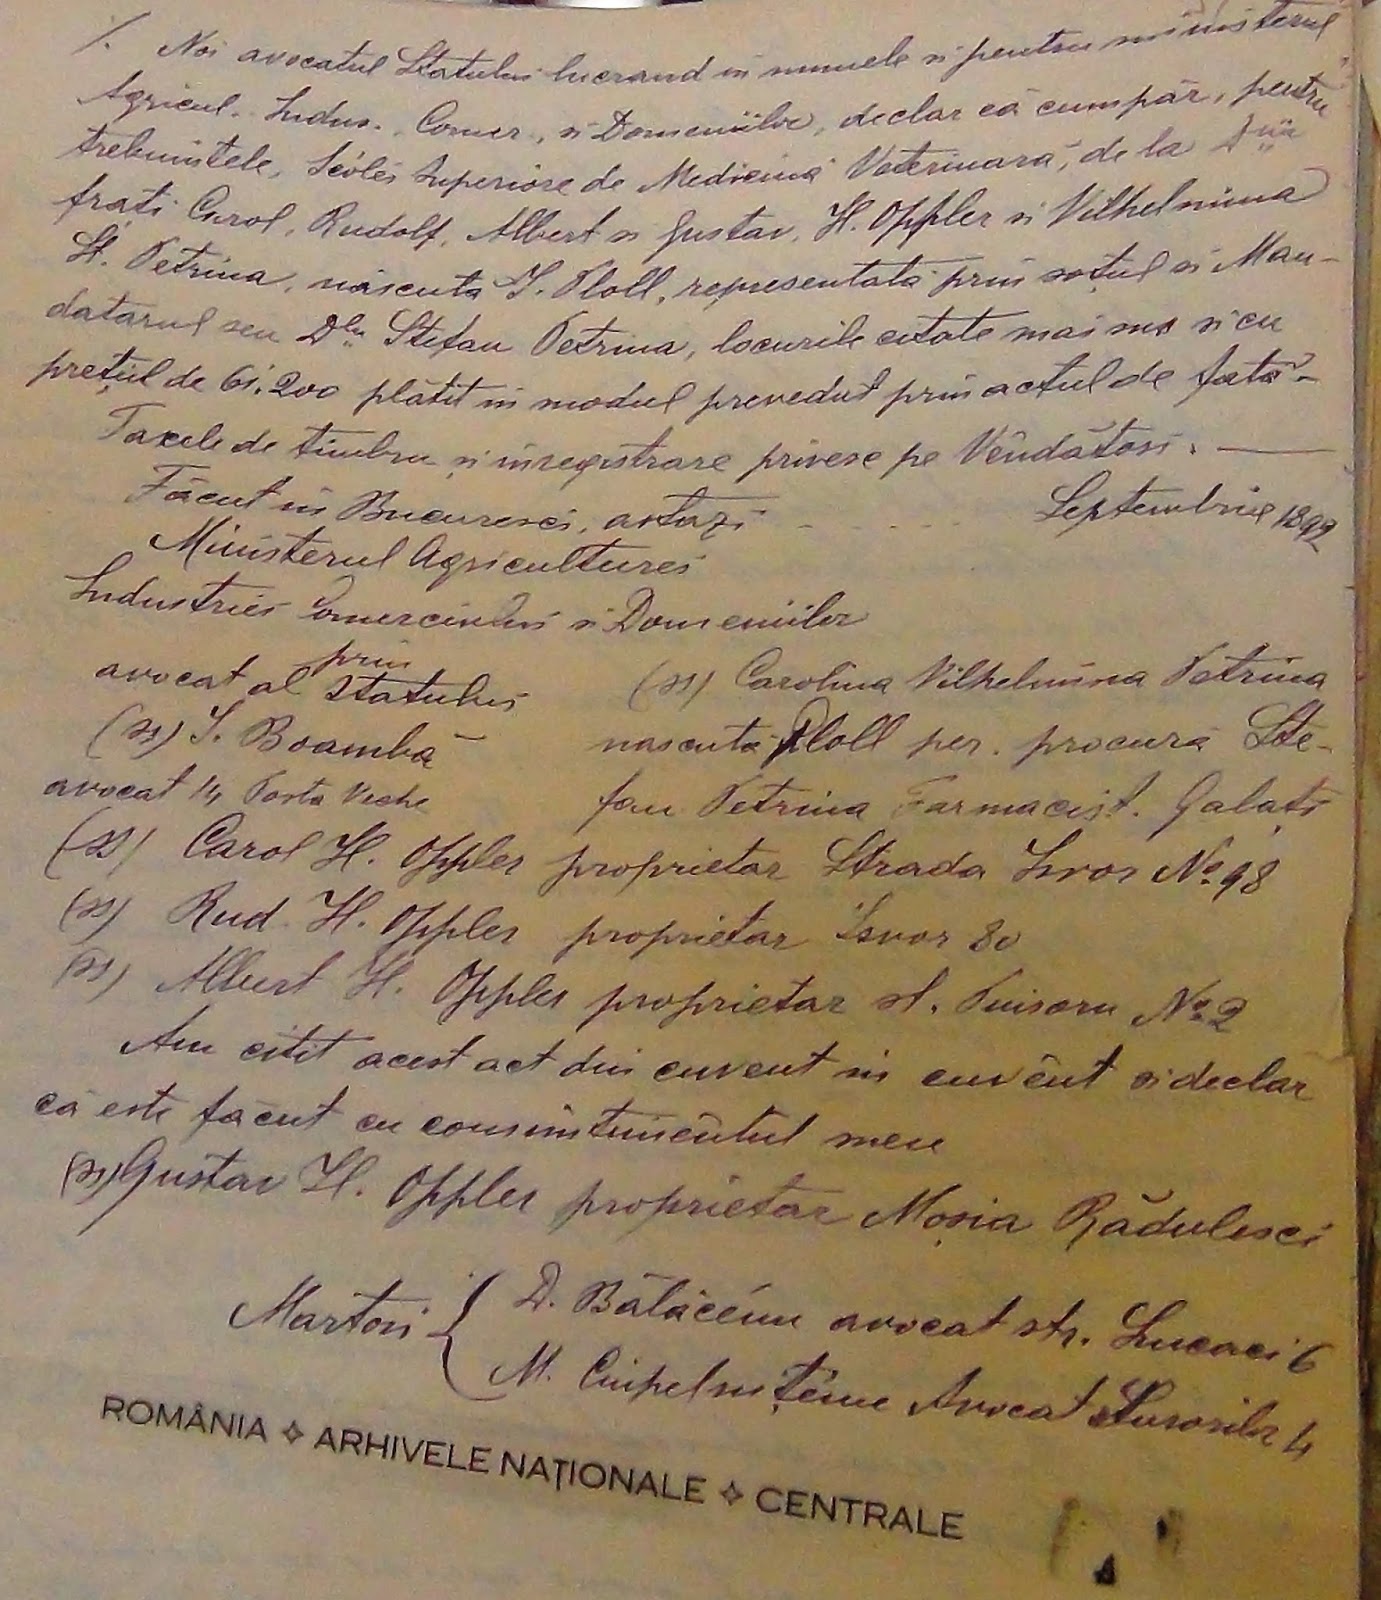 /. Noi avocatul Statului lucrand in numele si pentru ministerul
Agricul. Indus. Comer. si Domeniilor, declar că cumpăr, pentru
trebuintele, Scólei Superiore de Medicină Veterinară, de la D nii
frați Carol, Rudolf, Albert si Gustav, H. Oppler si Vilhelmina
St. Petrina, născuta I. Ploll, representată prin soțul si Man-
datarul seu Dlu Stefan Petrina, locurile citate mai sus si cu
prețul de 61.200 plătit in modul prevedut prin actul de fată-
Taxele de timbru si inregistrare privesc pe Vêndători.
Făcut in Bucuresci, astazi - - - - - Septembrie 1892
Ministerul Agriculturei
Industriei Comerciului si Domeniilor
prin
avocat al Statului
(ss) I. Boambă
avocat 14 Posta Veche
(ss) Carolina Vilhelmina Petrina
nascută Ploll per. procură Ste-
fan Petrina Farmacist. Galați
(ss) Carol H. Oppler proprietar Strada Isvor No. 98
(ss) Rud. H. Oppler proprietar Isvor 80
(ss) Albert H. Oppler proprietar st. Puisoru No. 2
Am citit acest act din cuvent in cuvênt si declar
că este făcut cu consimtimêntul meu
(ss) Gustav H. Oppler proprietar Moșia Rădulesci
Martori { D. Bălăcénu avocat str. Lucaci 6
M. Ciupelnițénu Avocat Surorilor 4
ROMÂNIA ✧ ARHIVELE NAȚIONALE ✧ CENTRALE